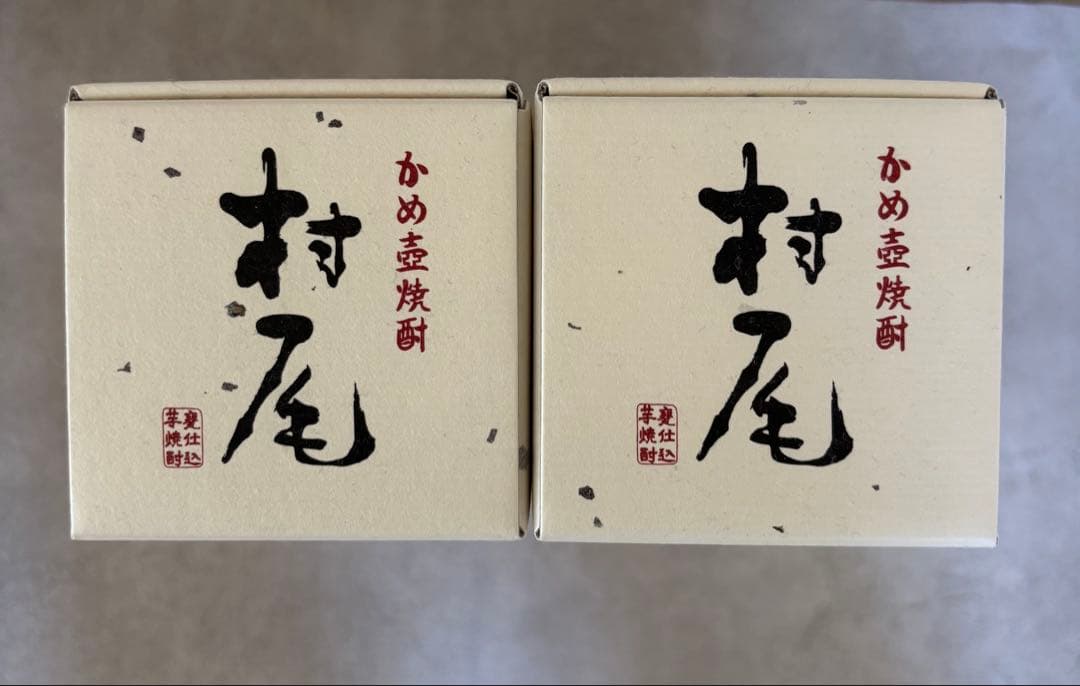 かめ壺焼酎
村尾
甕仕込
芋焼酎
かめ壺焼酎
村尾
甕仕込
芋焼酎